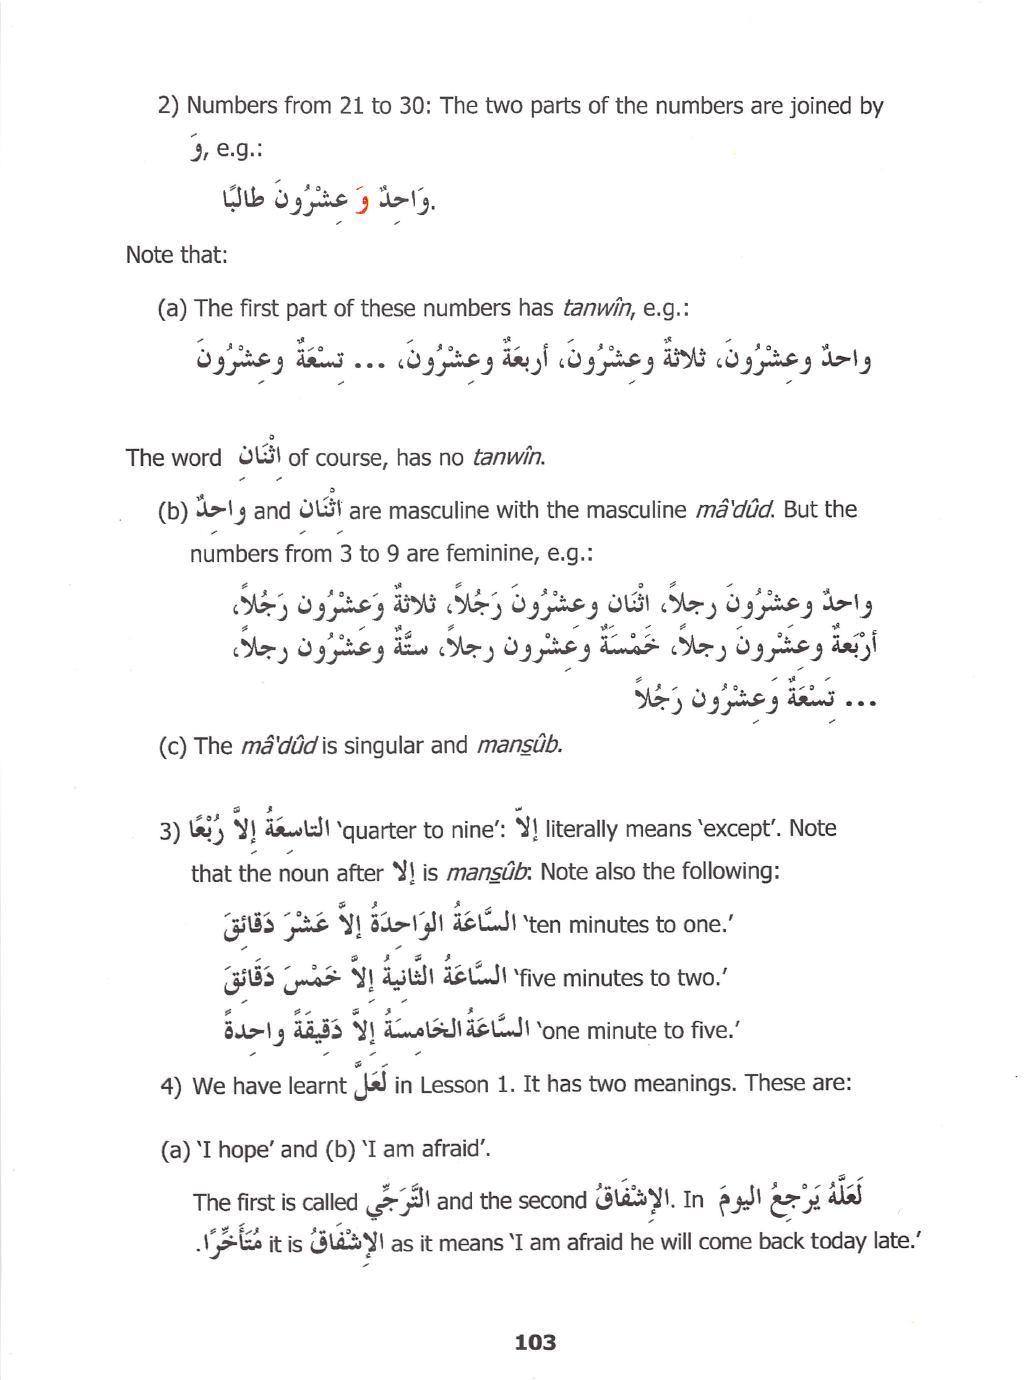 2) Numbers from 21 to 30: The two parts of the numbers are joined by
وَ, e.g.:
وَاحِدٌ وَ عِشْرُونَ طالبًا.
Note that:
(a) The first part of these numbers has tanwîn, e.g.:
واحدٌ وعِشْرُونَ، ثلاثةٌ وعِشْرُونَ، أربعَةٌ وعِشْرُونَ، ... تِسْعَةٌ وعِشْرُونَ
The word اثْنَانِ of course, has no tanwîn.
(b) واحِدٌ and اثْنَانِ are masculine with the masculine mâ'dûd. But the
numbers from 3 to 9 are feminine, e.g.:
واحِدٌ وعِشْرُونَ رجلاً، اثْنَانِ وعِشْرُونَ رَجُلاً، ثلاثةٌ وَعِشْرُون رَجُلاً،
أرْبَعةٌ وعِشْرونَ رجلاً، خَمْسَةٌ وعِشْرون رجلاً، ستَّةٌ وعِشْرُون رجلاً،
... تِسْعَةٌ وَعِشْرُون رَجُلاً
(c) The mâ'dûd is singular and mansûb.
3) التاسِعَةُ إلاَّ رُبْعًا ‘quarter to nine’: إلاّ literally means ‘except’. Note
that the noun after إلا is mansûb: Note also the following:
السَّاعَةُ الوَاحِدَةُ إلاَّ عَشْرَ دَقَائِقَ ‘ten minutes to one.’
السَّاعَةُ الثَّانِيةُ إلاَّ خَمْسَ دَقَائِقَ ‘five minutes to two.’
السَّاعَةُ الخَامِسَةُ إلاَّ دَقِيقَةً واحِدةً ‘one minute to five.’
4) We have learnt لَعَلَّ in Lesson 1. It has two meanings. These are:
(a) ‘I hope’ and (b) ‘I am afraid’.
The first is called التَّرَجِّي and the second الإشْفَاقُ. In لَعَلَّهُ يَرْجِعُ اليومَ
مُتَأَخِّرًا. it is الإشْفَاقُ as it means ‘I am afraid he will come back today late.’
103